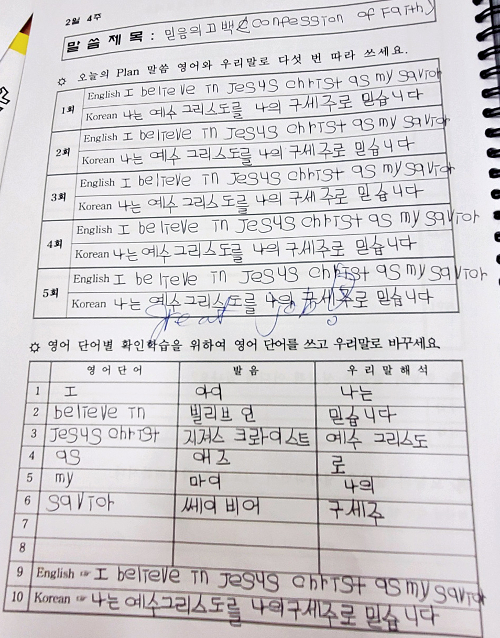 2월 4주
말씀제목: 믿음의고백 (Confession of Faith)
☼ 오늘의 Plan 말씀 영어와 우리말로 다섯 번 따라 쓰세요.
1회 English I believe in Jesus Christ as my savior
Korean 나는 예수 그리스도를 나의 구세주로 믿습니다
2회 English I believe in Jesus Christ as my savior
Korean 나는 예수 그리스도를 나의 구세주로 믿습니다
3회 English I believe in Jesus Christ as my savior
Korean 나는 예수 그리스도를 나의 구세주로 믿습니다
4회 English I believe in Jesus Christ as my savior
Korean 나는예수 그리스도를 나의 구세주로 믿습니다
5회 English I believe in Jesus Christ as my savior
Korean 나는 예수 그리스도를 나의 구세주로 믿습니다
great job!
☼ 영어 단어별 확인학습을 위하여 영어 단어를 쓰고 우리말로 바꾸세요.
영어단어 발음 우리말해석
1 I 아이 나는
2 believe in 빌리브 인 믿습니다
3 Jesus Christ 지저스 크라이스트 예수 그리스도
4 as 애즈 로
5 my 마이 나의
6 savior 쎄이비어 구세주
7
8
9 English ☞ I believe in Jesus Christ as my savior
10 Korean ☞ 나는예수그리스도를 나의구세주로 믿습니다